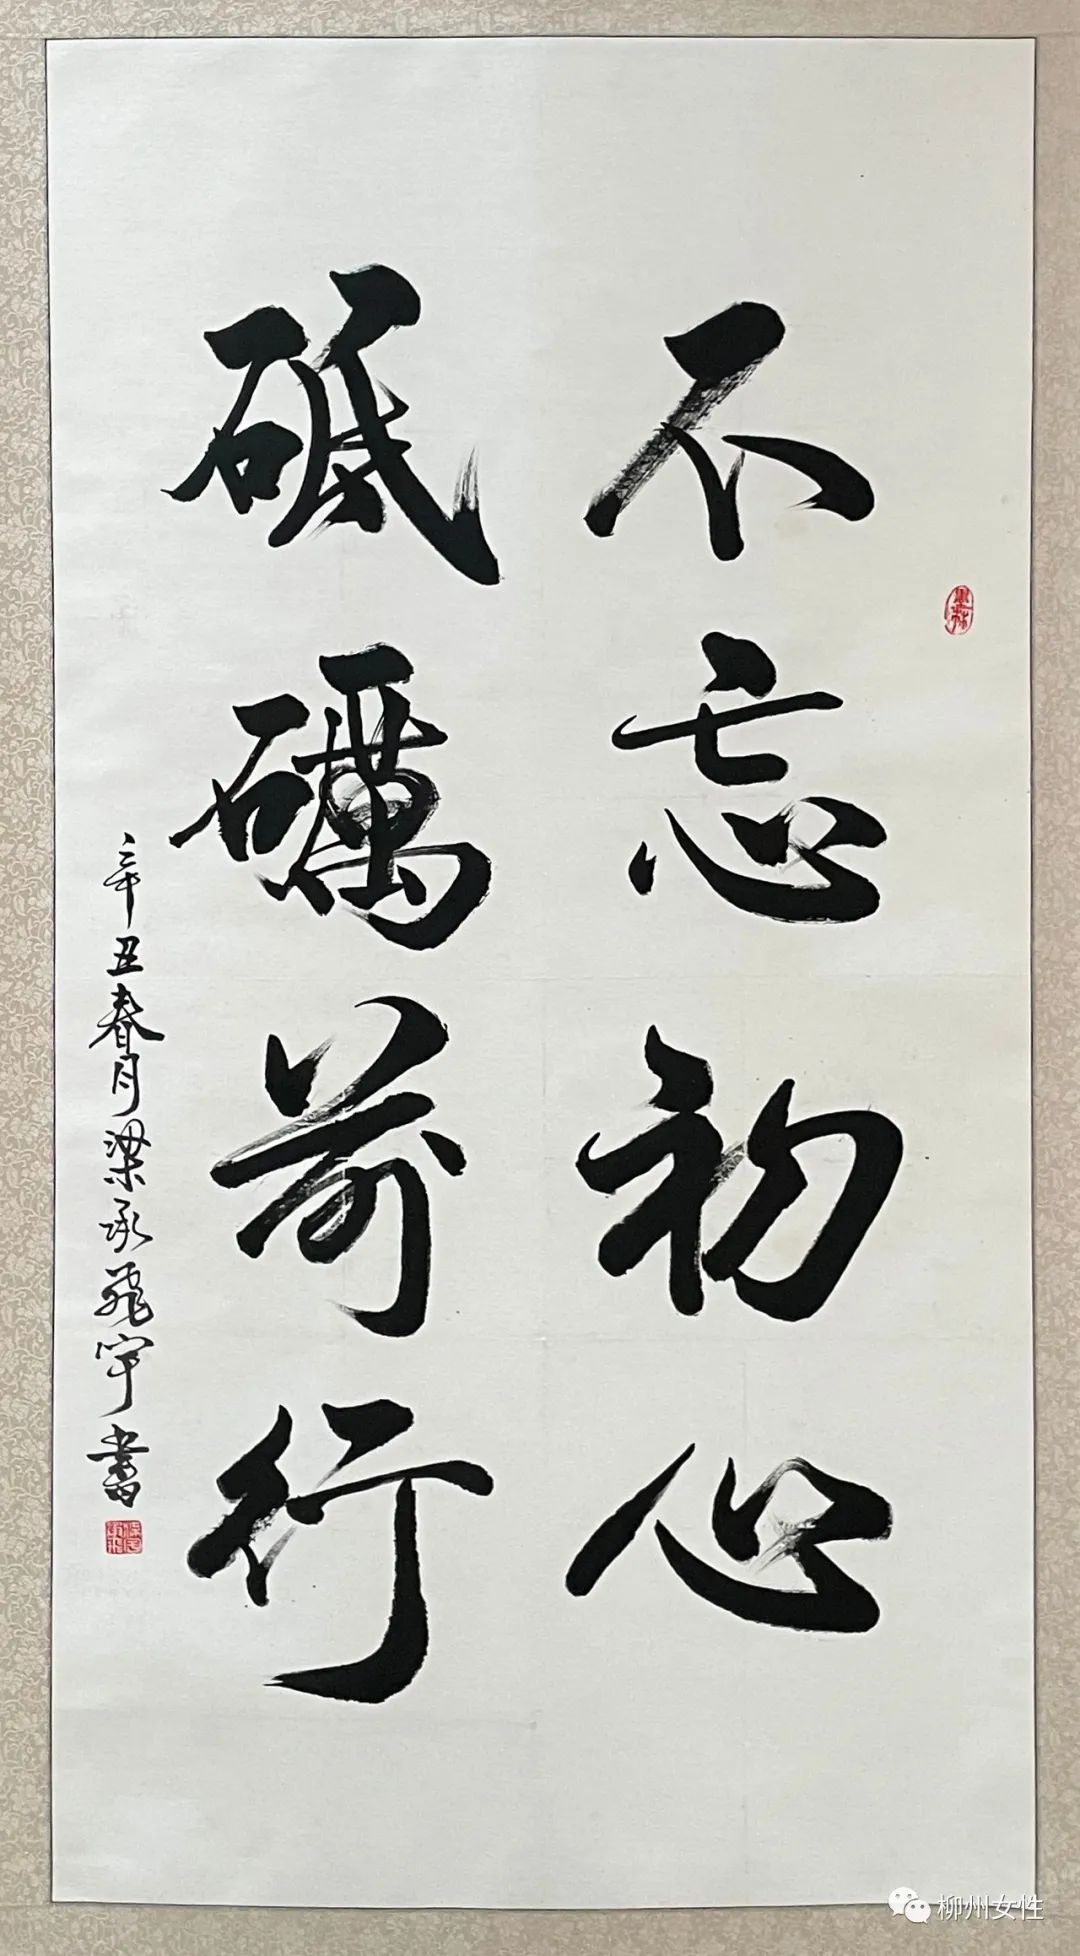 不忘初心
砥礪前行
辛丑春月梁承飛宇書
柳州女性